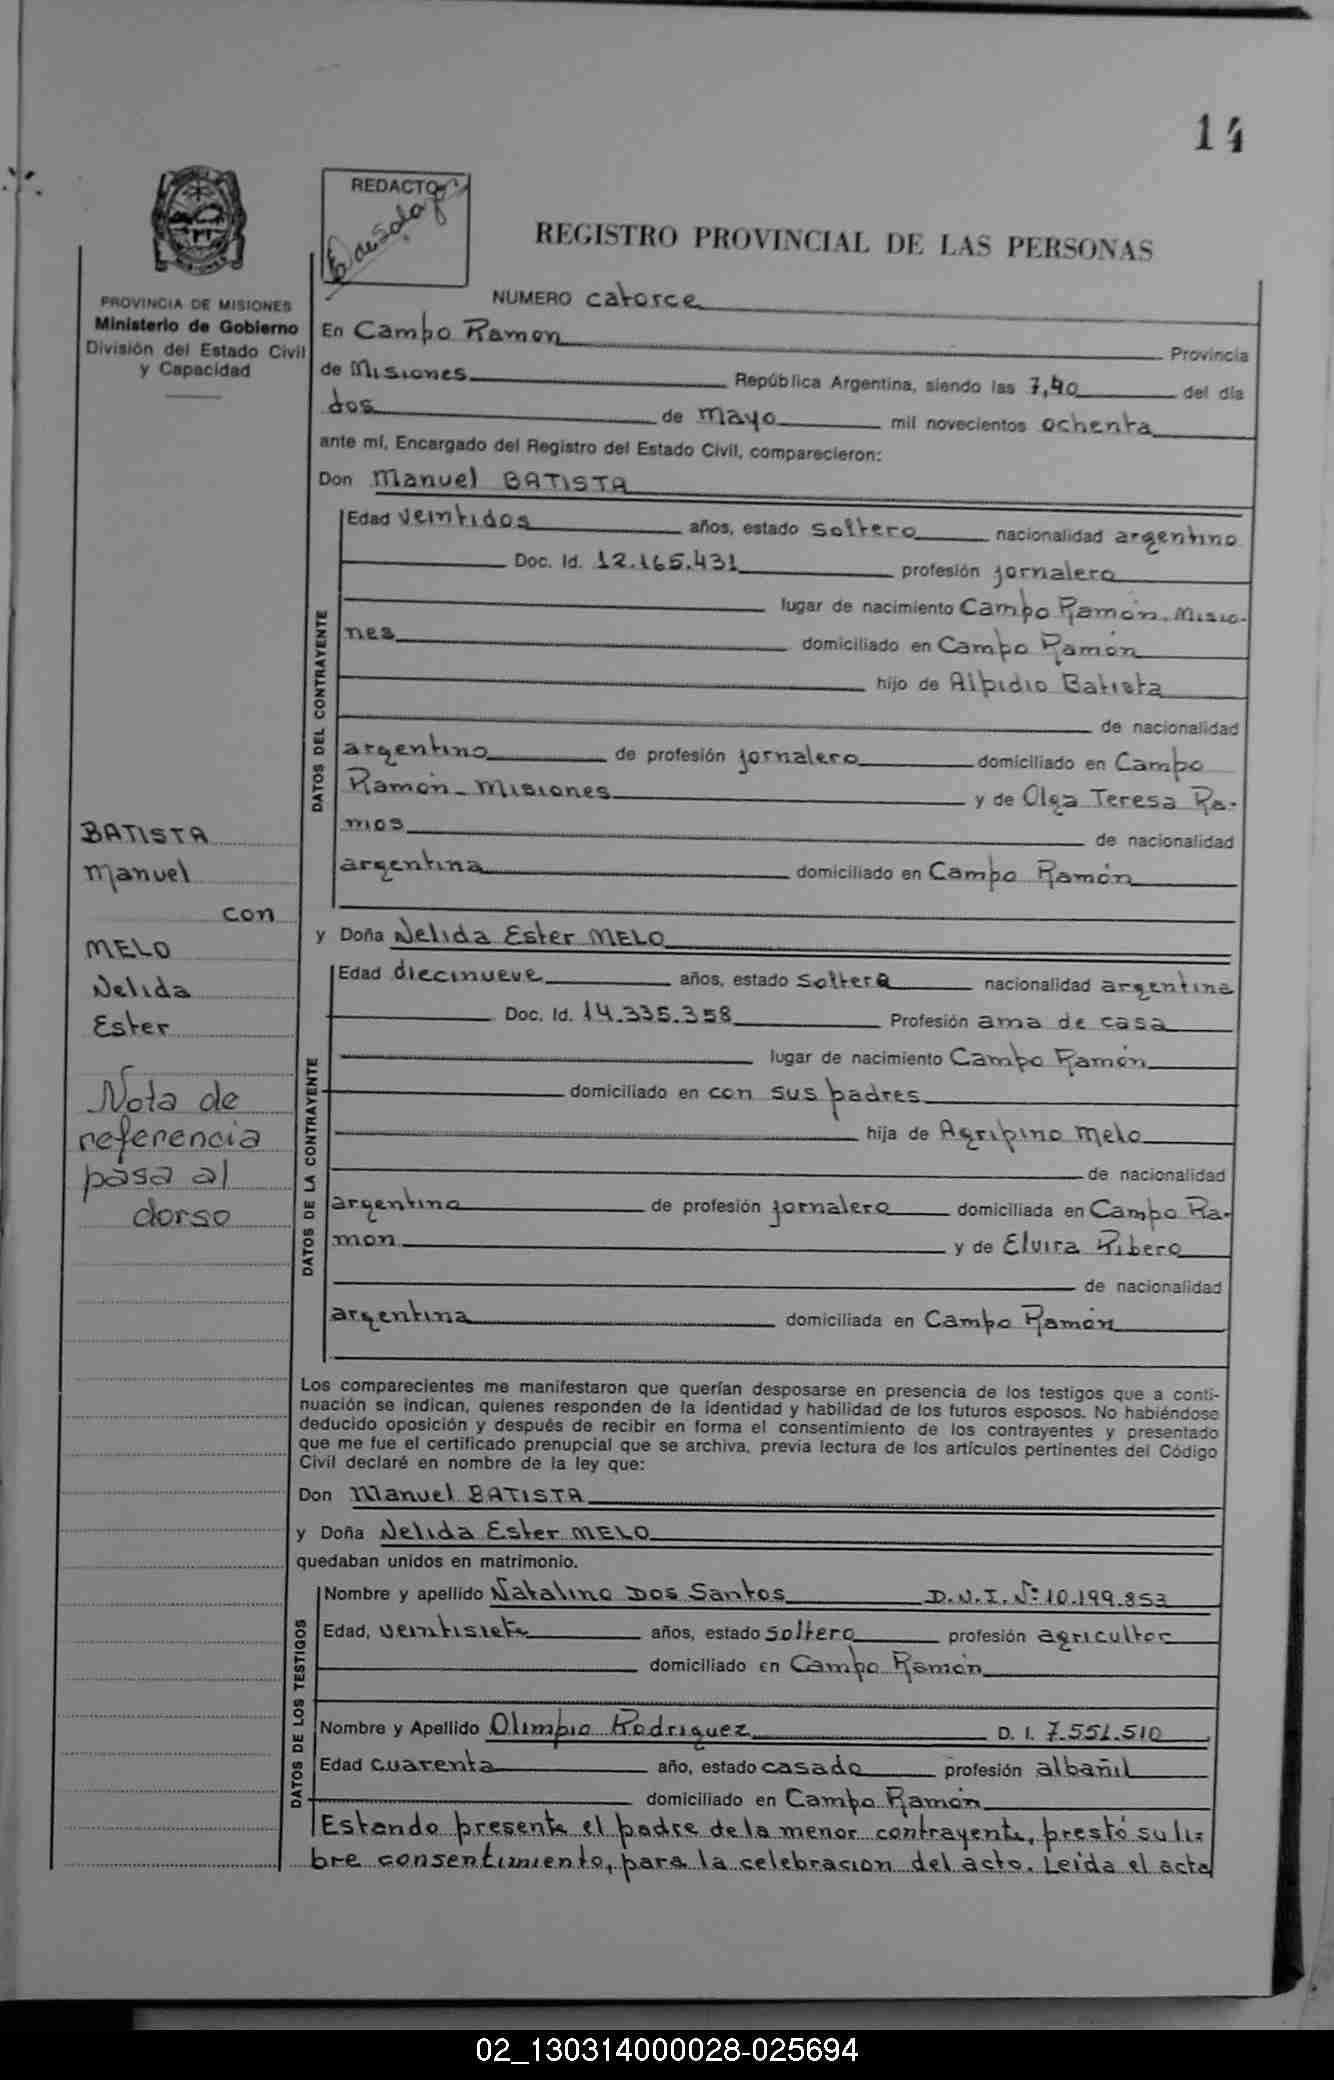 14
REDACTO
REGISTRO PROVINCIAL DE LAS PERSONAS
PROVINCIA DE MISIONES
Ministerio de Gobierno
División del Estado Civil
y Capacidad
NUMERO catorce
En Campo Ramon Provincia
de Misiones República Argentina, siendo las 7,40 del día
dos de mayo mil novecientos ochenta
ante mí, Encargado del Registro del Estado Civil, comparecieron:
Don Manuel BATISTA
DATOS DEL CONTRAYENTE
Edad veintidos años, estado soltero nacionalidad argentino
Doc. Id. 12.165.431 profesión jornalero
lugar de nacimiento Campo Ramón. Misio-
nes domiciliado en Campo Ramón
hijo de Alpidio Batista
de nacionalidad
argentino de profesión jornalero domiciliado en Campo
Ramón - Misiones y de Olga Teresa Ra-
mos de nacionalidad
argentina domiciliado en Campo Ramón
BATISTA
Manuel
con
MELO
Nelida
Ester
Nota de
referencia
pasa al
dorso
y Doña Nelida Ester MELO
DATOS DE LA CONTRAYENTE
Edad diecinueve años, estado soltera nacionalidad argentina
Doc. Id. 14.335.358 Profesión ama de casa
lugar de nacimiento Campo Ramón
domiciliado en con sus padres
hija de Agripino Melo
de nacionalidad
argentino de profesión jornalero domiciliada en Campo Ra-
mon y de Elvira Ribero
de nacionalidad
argentina domiciliada en Campo Ramón
Los comparecientes me manifestaron que querían desposarse en presencia de los testigos que a conti-
nuación se indican, quienes responden de la identidad y habilidad de los futuros esposos. No habiéndose
deducido oposición y después de recibir en forma el consentimiento de los contrayentes y presentado
que me fue el certificado prenupcial que se archiva, previa lectura de los artículos pertinentes del Código
Civil declaré en nombre de la ley que:
Don Manuel BATISTA
y Doña Nelida Ester MELO
quedaban unidos en matrimonio.
DATOS DE LOS TESTIGOS
Nombre y apellido Natalino Dos Santos D.N.I. Nº 10.199.853
Edad, veintisiete años, estado soltero profesión agricultor
domiciliado en Campo Ramón
Nombre y Apellido Olimpio Rodriguez D. I. 7.551.510
Edad cuarenta año, estado casado profesión albañil
domiciliado en Campo Ramón
Estando presente el padre de la menor contrayente, prestó su li-
bre consentimiento, para la celebracion del acto. Leida el acta
02_130314000028-025694